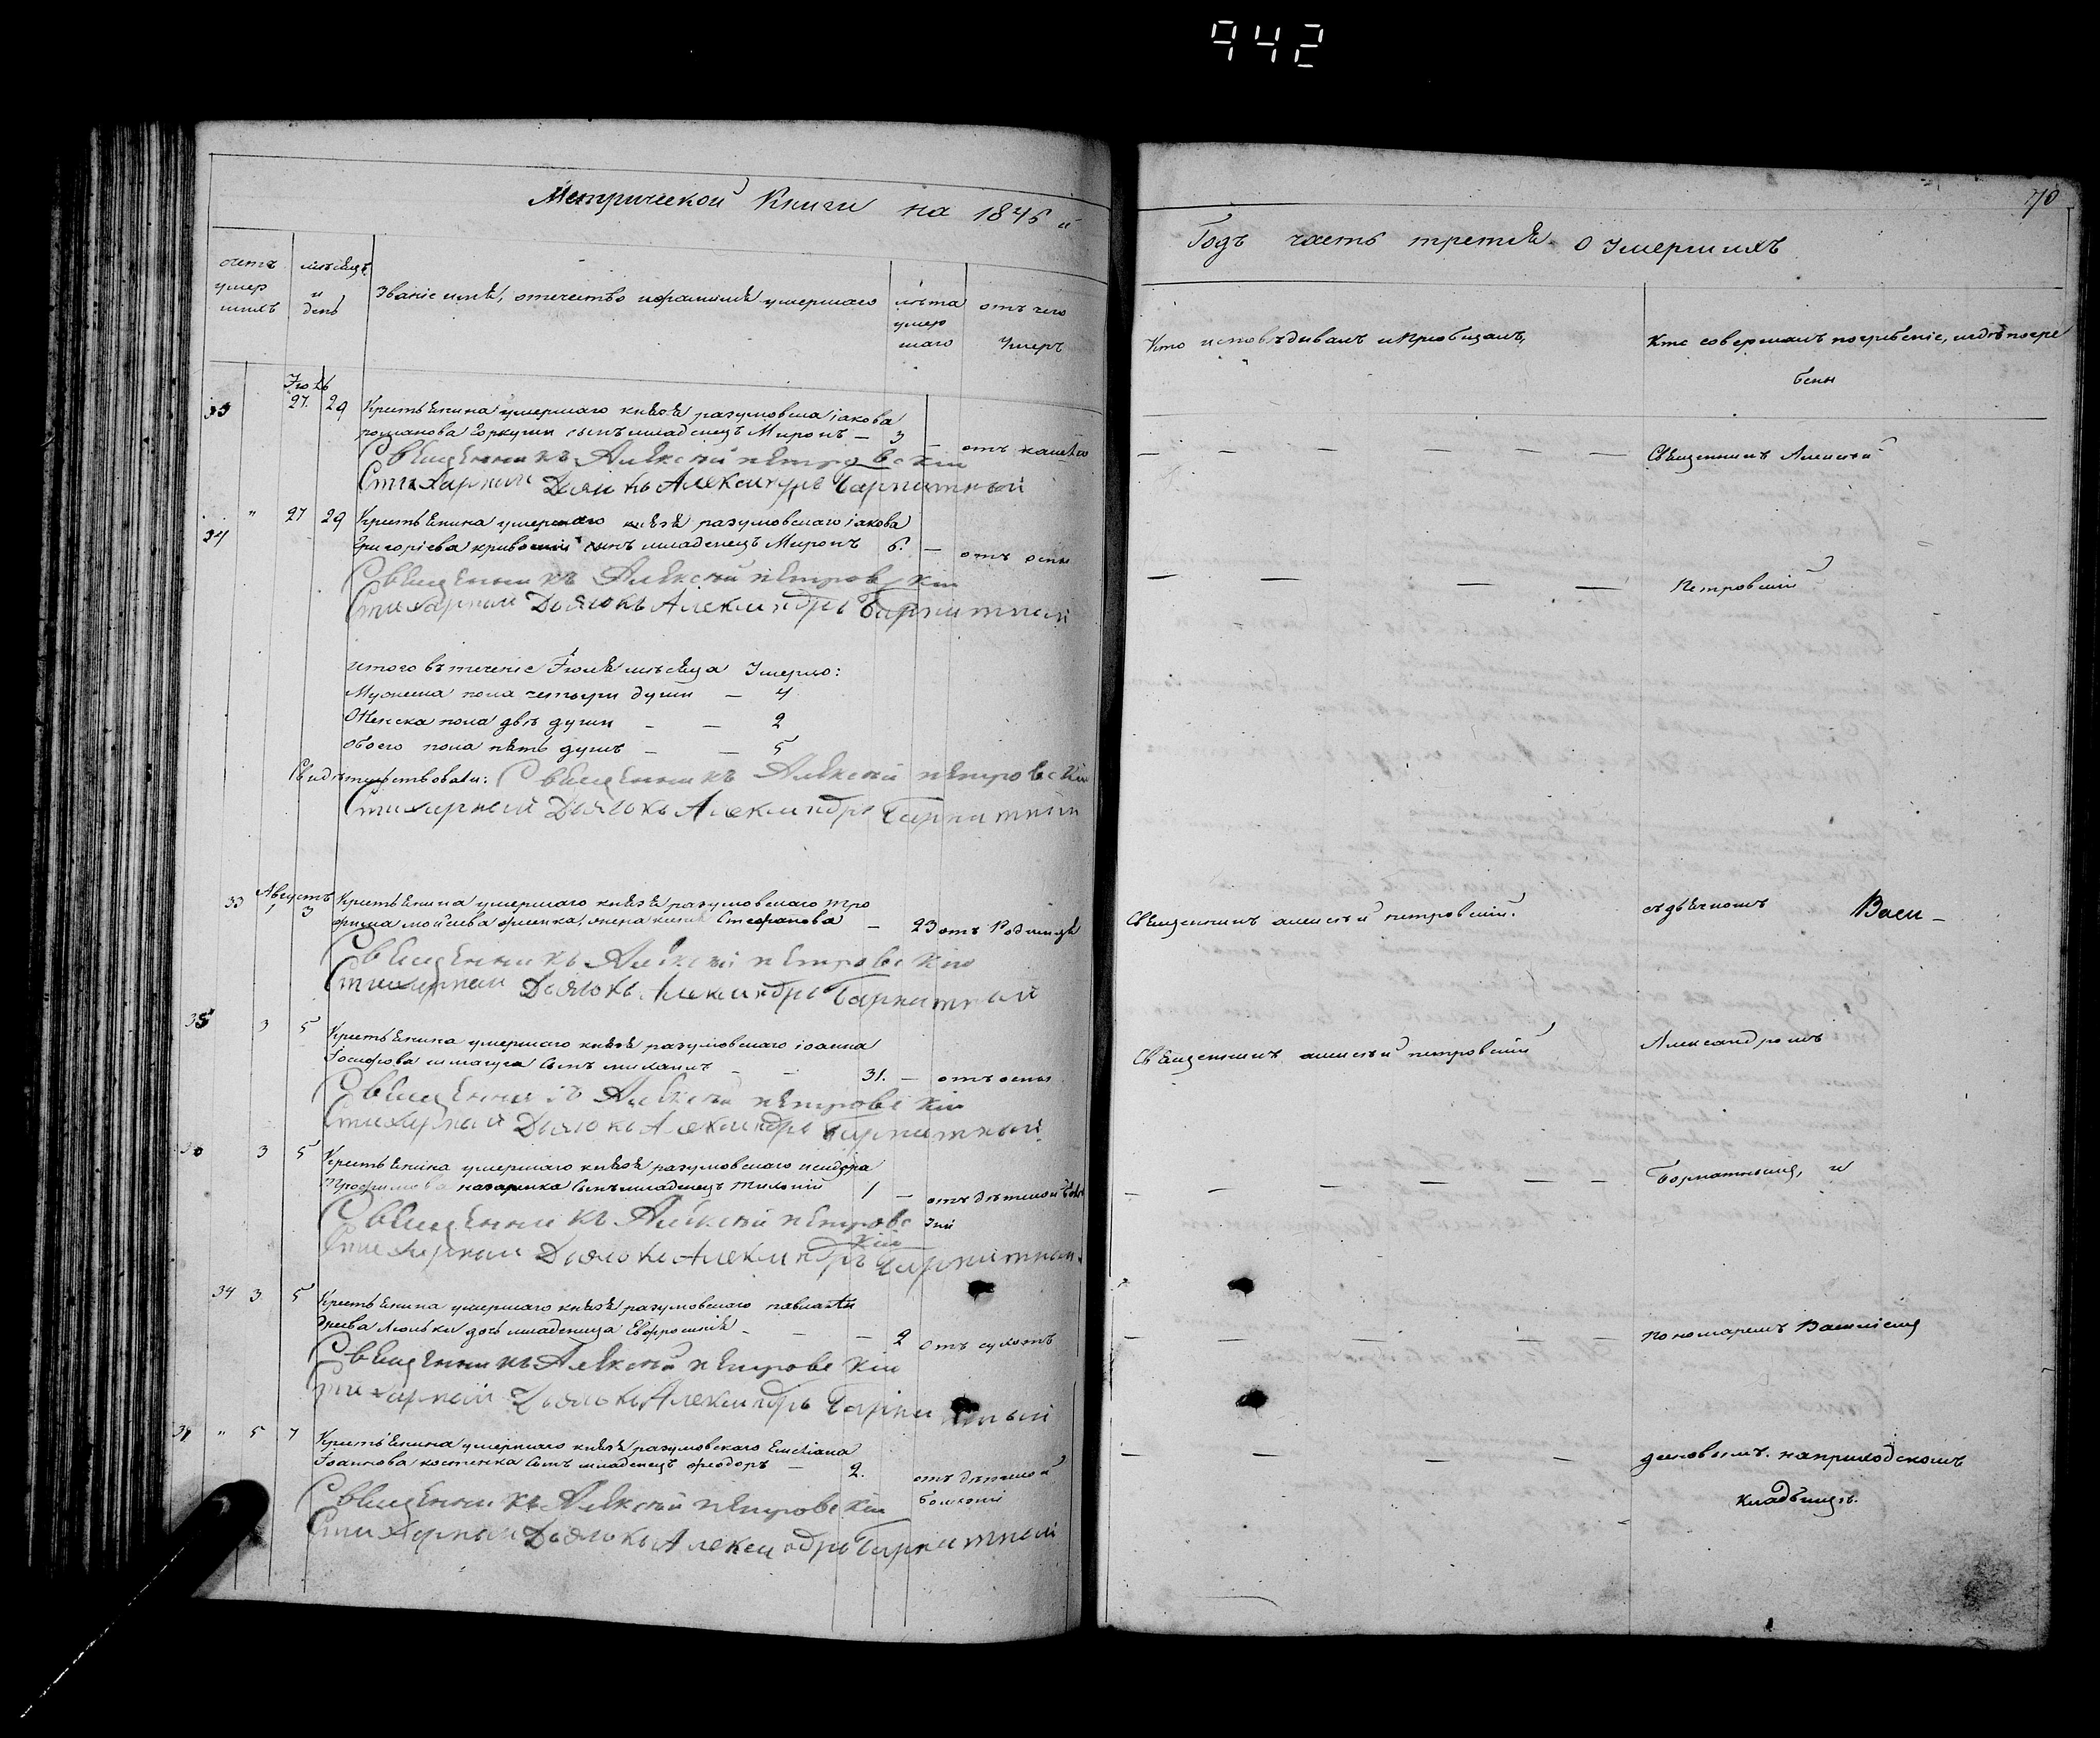 942
Метрической Книги на 1845 й
Годъ часть третья о Умершихъ
70
счетъ умер шихъ
мѣсяцъ и день
Званіе имя, отечество и фамилия умершаго
лѣта умер шаго
отъ чего Умеръ
Кто исповѣдывалъ и Приобщалъ,
Кто совершалъ погребеніе, и гдѣ погре
бены
Июль
33 27. 29 Крестьянина умершаго князя разумовска іакова
романова сынъ младенецъ Миронъ — 3 — отъ кашлю
Священникъ Алексій Петровскій
Стихарный Дьячокъ Александръ Барнатный
— — — — — — Священникъ Алексѣй
34 " 27 29 Крестьянина умершаго князя разумовскаго іакова
Григоріева сынъ младенецъ Миронъ 6. — отъ оспы
Священникъ Алексій Петровскій
Стихарный Дьячокъ Александръ Барнатный
— — — — Петровскій
итого въ теченіе Іюля мѣсяца Умерло:
Мужеска пола четыри души — 4
Женска пола двѣ души — — 2
обоего пола пять душъ — — 5
Свидѣтельствовали: Священникъ Алексій Петровскій
Стихарный Дьячокъ Александръ Барнатный
Августъ
33 1 3 Крестьянина умершаго князя разумовскаго Тро
фима мойсіева жена Стефанова — 23 отъ Родинця
Священникъ Алексій Петровскій
Стихарный Дьячокъ Александръ Барнатный
Священникъ алексѣй петровскій.
съ дьячкомъ Васи –
35 3 5 Крестьянина умершаго князя разумовскаго іоанна
Іосифова сынъ михаилъ — — 31. — отъ оспы
Священникъ Алексій Петровскій
Стихарный Дьячокъ Александръ Барнатный
Священникъ алексѣй петровскій
Александромъ
36 3 5 Крестьянина умершаго князя разумовскаго исидора
Трофимова назаренка сынъ младенецъ 1 — отъ дѣтской болѣ
зни
Священникъ Алексій Петровскій
Стихарный Дьячокъ Александръ Барнатный
— — — — — — Борнатнымъ, и
34 3 5 Крестьянина умершаго князя разумовскаго павла Ан
дреева Люльки дочь младенца Евфросинія — — — 2 отъ сухотъ
Священникъ Алексій Петровскій
Стихарный Дьячокъ Александръ Барнатный
— — — — — пономаремъ Василіемъ
37 " 5 7 Крестьянина умершаго князя разумовскаго Емеліана
Іоаннова костенка сынъ младенецъ феодоръ — 2. отъ дѣтской
болезни
Священникъ Алексій Петровскій
Стихарный Дьячокъ Александръ Барнатный
— — — — — на приходскомъ
Кладбищѣ.